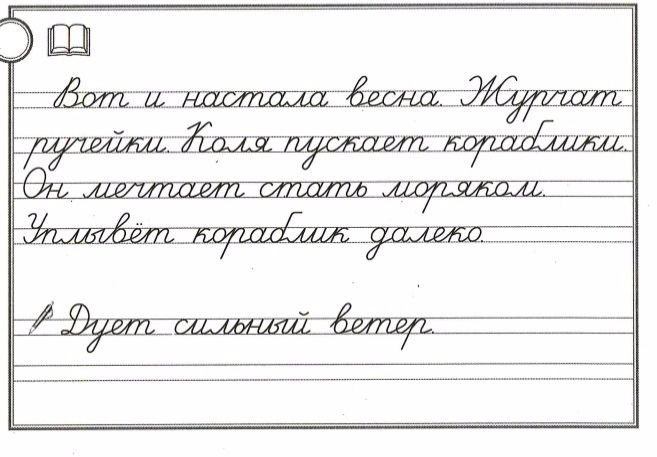 Вот и настала весна. Журчат
ручейки. Коля пускает кораблики.
Он мечтает стать моряком.
Уплывёт кораблик далеко.
Дует сильный ветер.